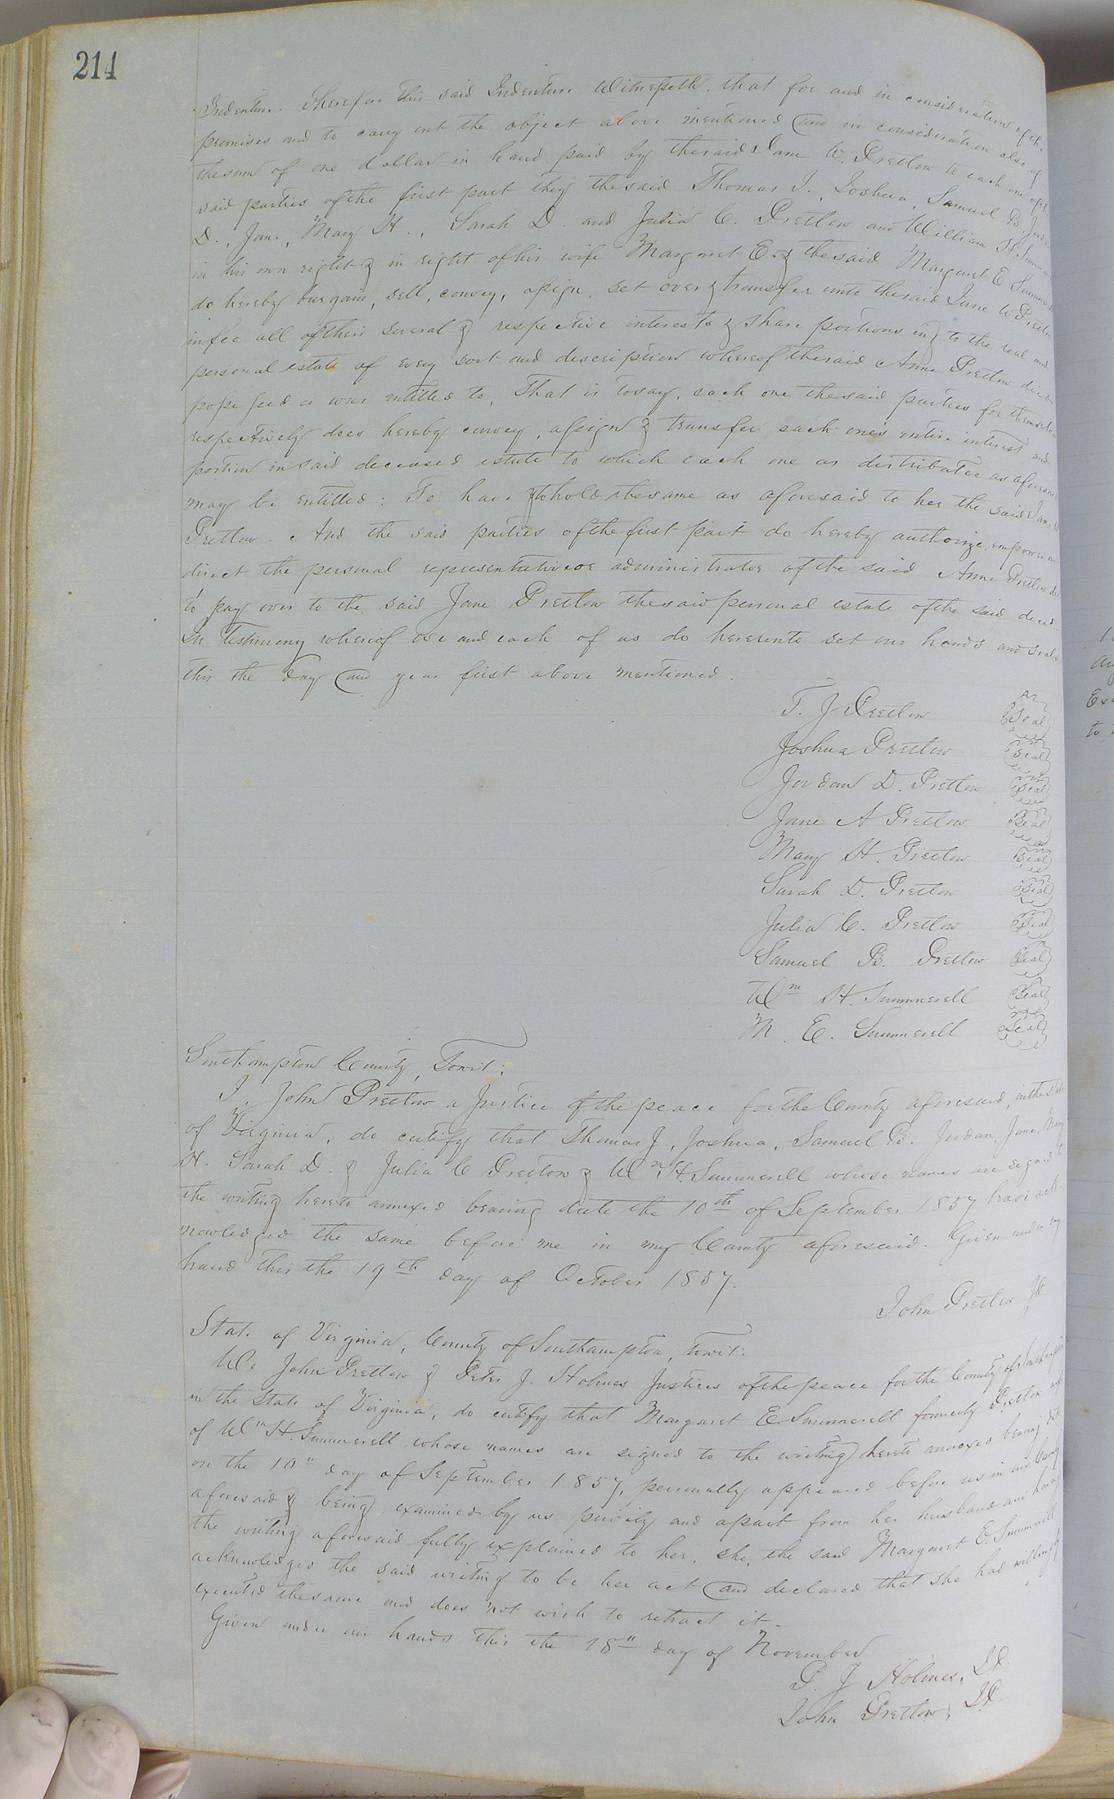 214
Indenture. Therefore this said Indenture Witnesseth, that for and in consideration of the
premises and to carry out the object above mentioned and in consideration also of
the sum of one dollar in hand paid by the said Jane W. Pretlow to each one of the
said parties of the first part they the said Thomas J., Joshua, Samuel B., Jordan
D., Jane, Mary H., Sarah D. and Julia C. Pretlow and William H. Summerell
in his own right & in right of his wife Margaret E. & the said Margaret E Summerell
do hereby bargain, sell, convey, assign, set over & transfer unto the said Jane W Pretlow
in fee all of their several & respective interests & share portions in & to the real and
personal estate of every sort and description whereof the said Anna Pretlow died
possessed or was entitled to, That is to say, each one the said parties for themselves
respectively does hereby convey, assign & transfer each one's entire interest and
portion in said deceased estate to which each one as distributee as aforesaid
may be entitled: To have & to hold the same as aforesaid to her the said Jane W
Pretlow. And the said parties of the first part do hereby authorize, empower and
direct the personal representative or administrator of the said Anna Pretlow
to pay over to the said Jane Pretlow the said personal estate of the said decd.
In testimony whereof we and each of us do hereunto set our hands and seals
this the day and year first above mentioned.
T. J Pretlow Seal
Joshua Pretlow Seal
Jordan D. Pretlow Seal
Jane A Pretlow Seal
Mary H. Pretlow Seal
Sarah D. Pretlow Seal
Julia C. Pretlow Seal
Samuel B. Pretlow Seal
Wm H. Summerell Seal
M. E. Summerell Seal
Southampton County, Towit:
I, John Pretlow a Justice of the peace for the County aforesaid, in the State
of Virginia, do certify that Thomas J, Joshua, Samuel B. Jordan, Jane, Mary
H. Sarah D. & Julia C Pretlow & Wm H. Summerell whose names are signed to
the writing hereto annexed bearing date the 10th of September 1857 have ack-
nowledged the same before me in my County aforesaid. Given under my
hand this the 19th day of October 1857.
John Pretlow JP
State of Virginia, County of Southampton, towit:
We John Pretlow & Peter J. Holmes Justices of the peace for the County of Southampton
in the State of Virginia, do certify that Margaret E Summerell formerly Pretlow wife
of Wm H. Summerell whose names are signed to the writing hereto annexed bearing date
on the 10" day of September 1857, personally appeared before us in our County
aforesaid & being examined by us privily and apart from her husband and having
the writing aforesaid fully explained to her, she, the said Margaret E. Summerell
acknowledged the said writing to be her act and declared that she had willingly
executed the same and does not wish to retract it.
Given under our hands this the 18" day of November
P. J Holmes, J.P.
John Pretlow, J.P.